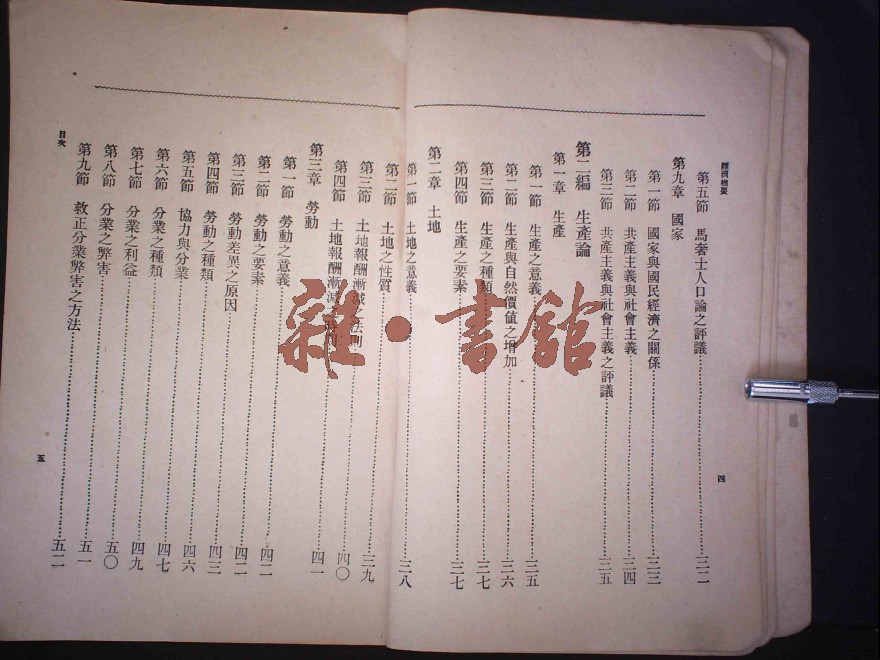 經濟概要
第五節 馬奢士人口論之評議……三二
第九章 國家
第一節 國家與國民經濟之關係……三三
第二節 共產主義與社會主義……三四
第三節 共產主義與社會主義之評議……三五
第二編 生產論
第一章 生產
第一節 生產之意義……三五
第二節 生產與自然價値之增加……三六
第三節 生產之種類……三七
第四節 生產之要素……三七
第二章 土地
四
第一節 土地之意義……三八
第二節 土地之性質
第三節 土地報酬漸減之法則……三九
第四節 土地報酬漸減……四〇
第三章 勞動……四一
第一節 勞動之意義
第二節 勞動之要素……四二
第三節 勞動差異之原因……四二
第四節 勞動之種類……四三
第五節 協力與分業……四六
第六節 分業之種類……四七
第七節 分業之利益……四九
第八節 分業之弊害……五〇
第九節 救正分業弊害之方法……五一
五二
目次
五
雜·書館